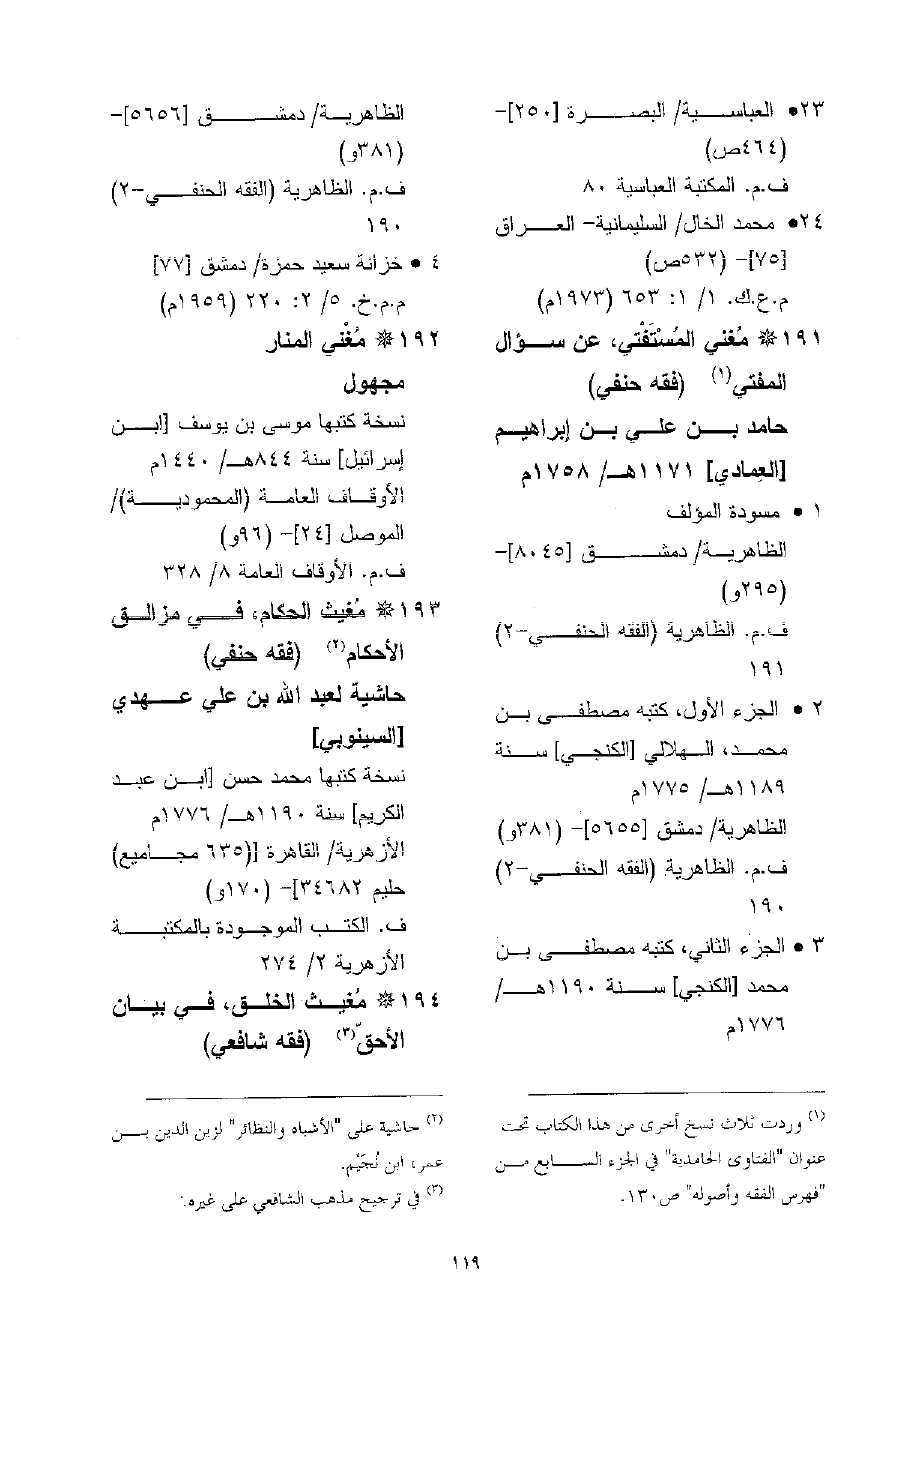 ٢٣• العباسية/ البصرة [٢٥٠]-
(٤٦٤ص)
ف.م. المكتبة العباسية ٨٠
٢٤• محمد الخال/ السليمانية- العراق
[٧٥]- (٥٣٢ص)
م.ع.ك. ١/ ١: ٦٥٣ (١٩٧٣م)
١٩١ * مُغني المُسْتَفْتي، عن سؤال
المفتي(١) (فقه حنفي)
حامد بن علي بن إبراهيم
[العمادي] ١١٧١هـ/ ١٧٥٨م
١ • مسودة المؤلف
الظاهرية/ دمشق [٨٠٤٥]-
(٢٩٥و)
ف.م. الظاهرية (الفقه الحنفي-٢)
١٩١
٢ • الجزء الأول، كتبه مصطفى بن
محمد، الهلالي [الكنجي] سنة
١١٨٩هـ/ ١٧٧٥م
الظاهرية/ دمشق [٥٦٥٥]- (٣٨١و)
ف.م. الظاهرية (الفقه الحنفي-٢)
١٩٠
٣ • الجزء الثاني، كتبه مصطفى بن
محمد [الكنجي] سنة ١١٩٠هـ/
١٧٧٦م
(١) وردت ثلاث نسخ أخرى من هذا الكتاب تحت
عنوان "الفتاوى الحامدية" في الجزء السابع من
"فهرس الفقه وأصوله" ص١٣٠.
الظاهرية/ دمشق [٥٦٥٦]-
(٣٨١و)
ف.م. الظاهرية (الفقه الحنفي-٢)
١٩٠
٤ • خزانة سعيد حمزة/ دمشق [٧٧]
م.م.خ. ٥/ ٢: ٢٢٠ (١٩٥٩م)
١٩٢ * مُغْني المنار
مجهول
نسخة كتبها موسى بن يوسف [ابن
إسرائيل] سنة ٨٤٤هـ/ ١٤٤٠م
الأوقاف العامة (المحمودية)/
الموصل [٢٤]- (٩٦و)
ف.م. الأوقاف العامة ٨/ ٣٢٨
١٩٣ * مُغيث الحكام، في مزالق
الأحكام(٢) (فقه حنفي)
حاشية لعبد الله بن علي عهدي
[السينوبي]
نسخة كتبها محمد حسن [ابن عبد
الكريم] سنة ١١٩٠هـ/ ١٧٧٦م
الأزهرية/ القاهرة [(٦٣٥ مجاميع)
حليم ٣٤٦٨٢]- (١٧٠و)
ف. الكتب الموجودة بالمكتبة
الأزهرية ٢/ ٢٧٤
١٩٤ * مُغيث الخلق، في بيان
الأحقّ(٣) (فقه شافعي)
(٢) حاشية على "الأشباه والنظائر" لزين الدين بن
عمر، ابن نُجَيْم.
(٣) في ترجيح مذهب الشافعي على غيره.
١١٩